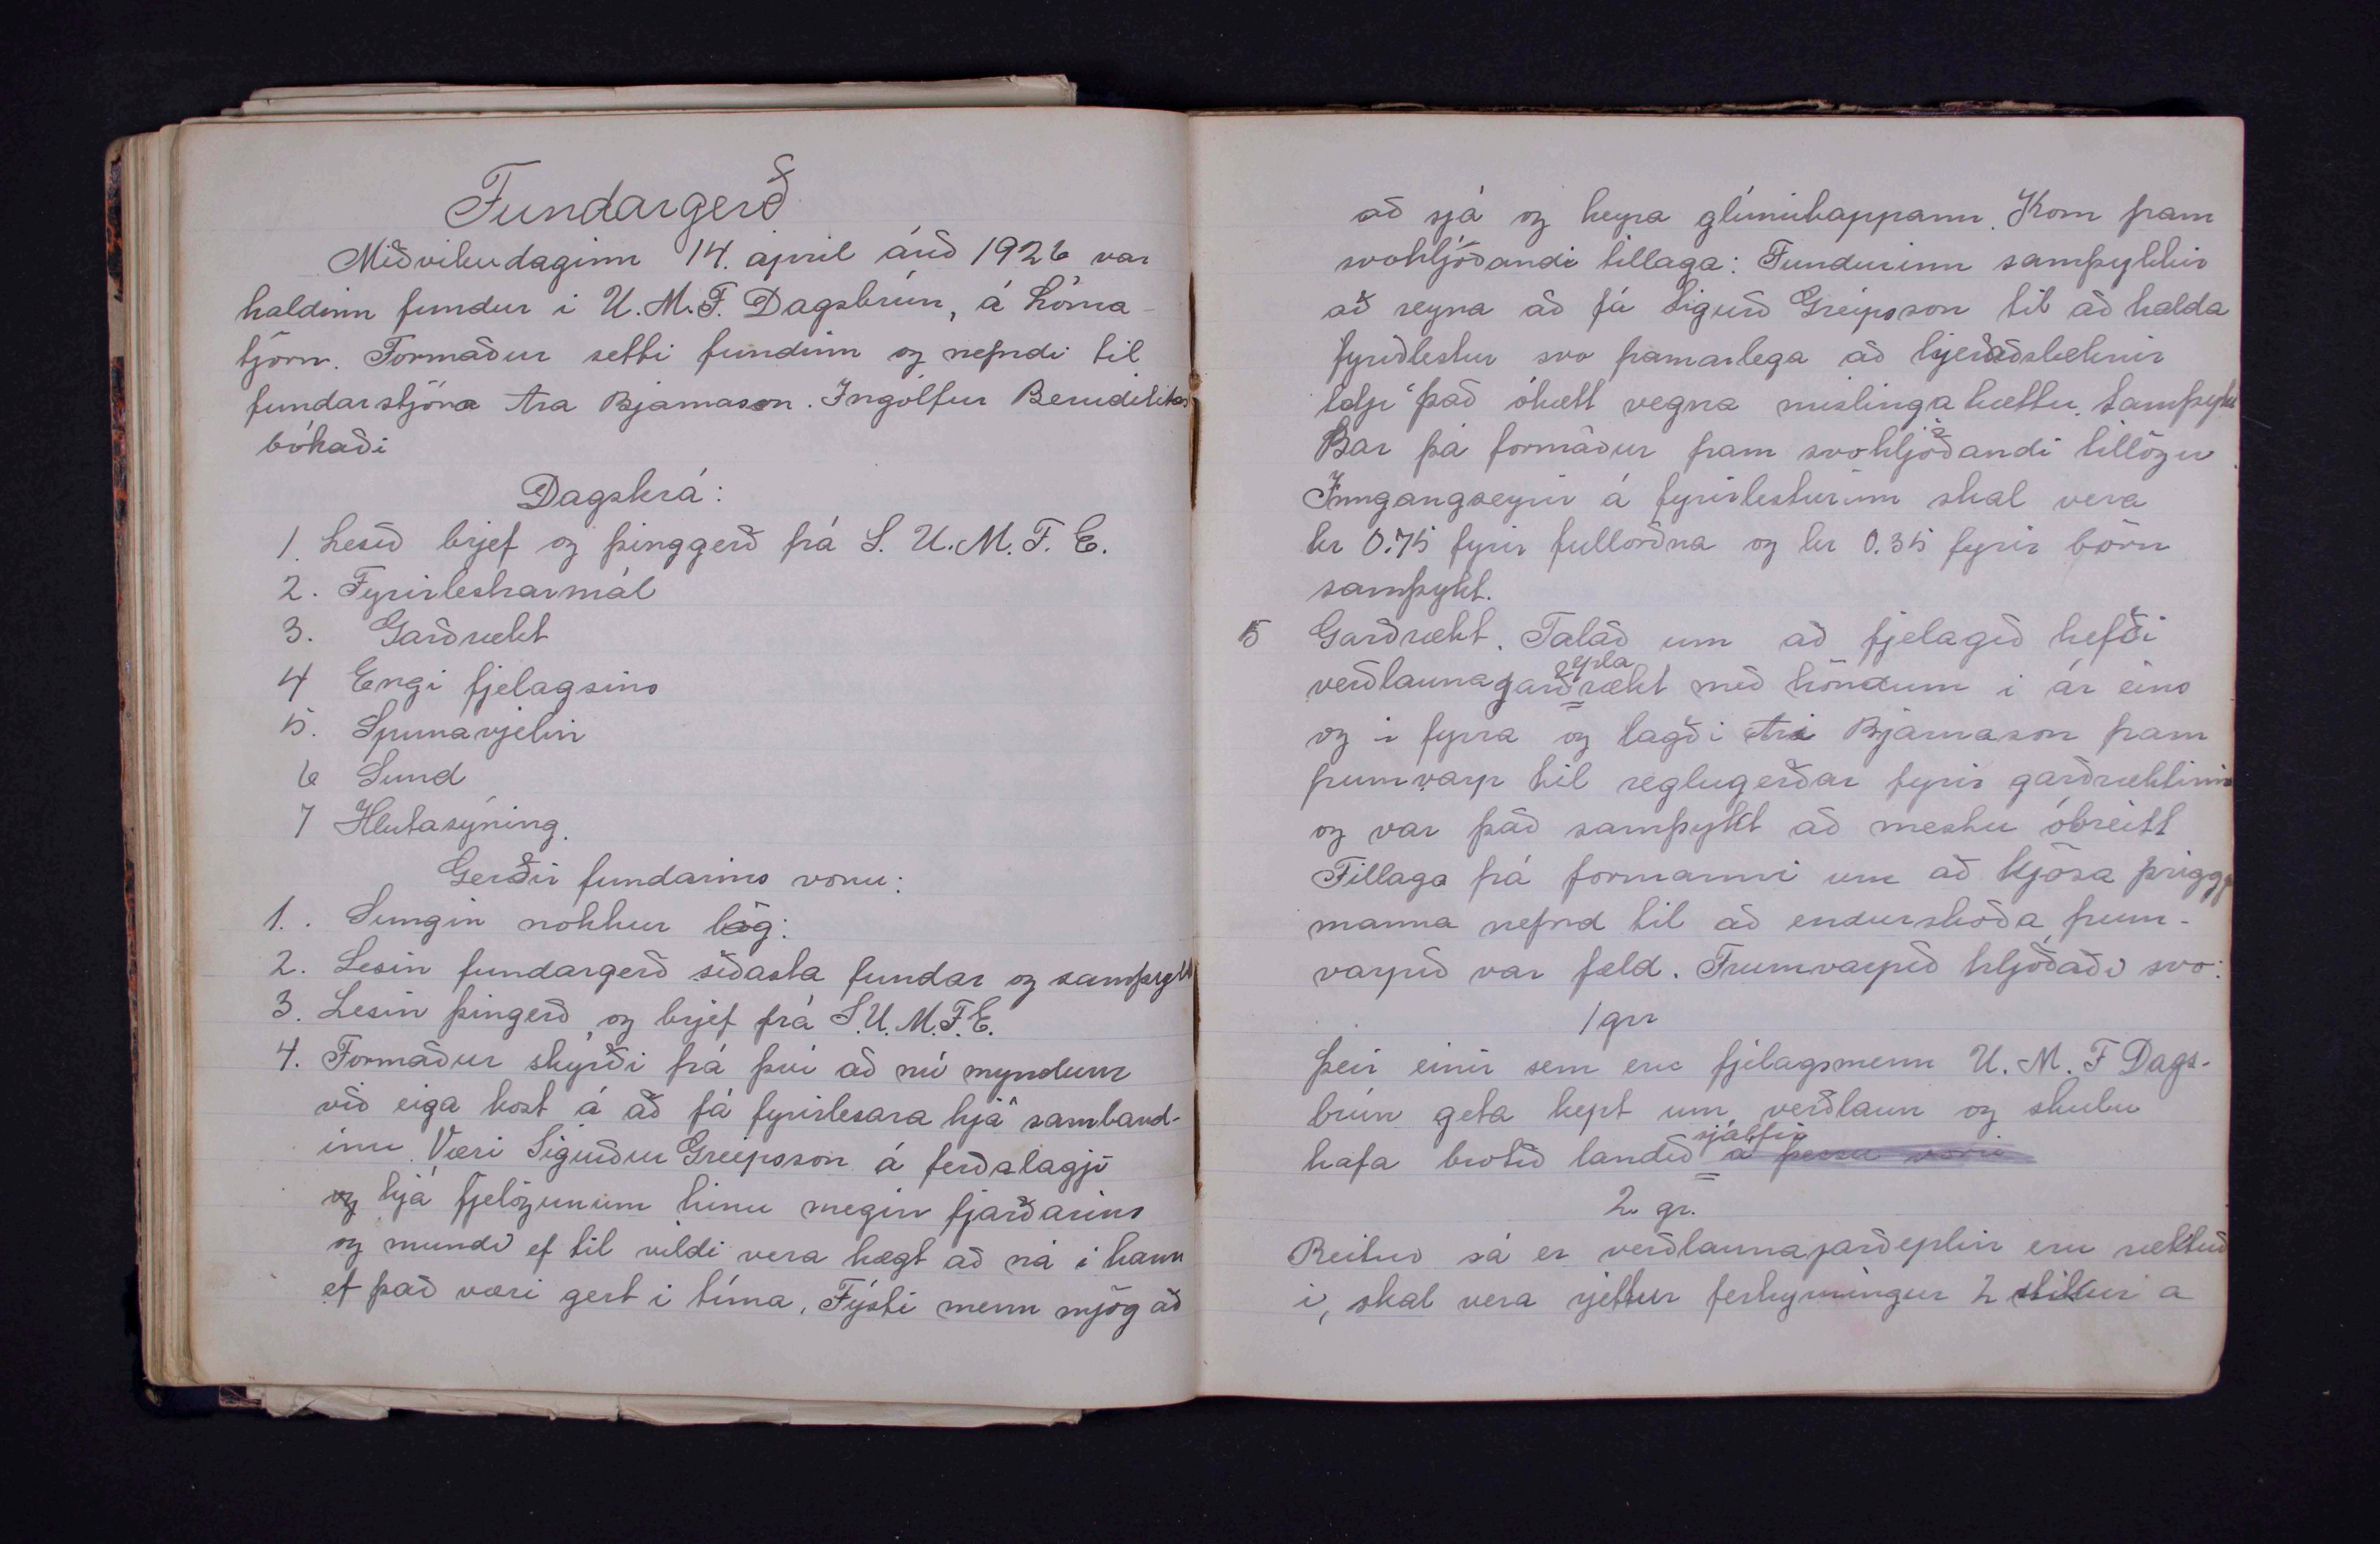 Fundargerð
Miðvikudaginn 14. apríl árið 1926 var
haldinn fundur i U.M.F. Dagsbrún, á Lóma-
tjörn. Formaður setti fundinn og nefndi til
fundarstjóra Ara Bjarnason. Ingólfur Benedikts
bókaði
Dagskrá:
1. Lesið brjef og þinggerð frá S. U. M. F. E.
2. Fyrirlestrarmál
3. Garðrækt
4 Engi fjelagsins
5. Spunavjelin
6 Sund
7 Hlutasýning.
Gerðir fundarins voru:
1.. Sungin nokkur lög:
2. Lesin fundargerð síðasta fundar og samþykt
3. Lesin þingerð og brjef frá S.U.M.F.E.
4. Formaður skýrði frá því að nú myndum
við eiga kost á að fá fyrirlesara hjá samband-
inu. Væri Sigurður Greipsson á ferðalagi
og hjá fjelögunum hinu megin fjarðarins
og mundi ef til vildi vera hægt að ná i hann
ef það væri gert i tíma. Fýsti menn mjög að
að sjá og heyra glímukappann. Kom fram
svohljóðandi tillaga: Fundurinn samþykkir
að reyna að fá Sigurð Greipsson til að halda
fyrirlestur svo framarlega að hjeraðslæknir
telji það óhætt vegna mislinga hættu. Samþykt
Bar þá formaður fram svohljóðandi tillögu
Inngangseyrir á fyrirlesturinn skal vera
kr 0.75 fyrir fullorðna og kr 0.35 fyrir börn
samþykt.
5 Garðrækt. Talað um að fjelagið hefði
epla
verðlaunagarðrækt með höndum i ár eins
og i fyrra og lagði Ari Bjarnason fram
frumvarp til reglugerðar fyrir garðræktinni
og var það samþykt að mestu óbreitt
Tillaga frá formanni um að kjósa þriggja
manna nefnd til að endurskoða frum-
varpið var feld. Frumvarpið hljóðaði svo:
1 gr
Þeir einir sem eru fjelagsmenn U. M. F Dags-
brún geta kept um verðlaun og skulu
sjálfir
hafa brotið landið á þessu vori
2. gr.
Reitur sá er verðlaunajarðeplin eru ræktuð
i, skal vera rjettur ferhyrningur 2 stikur a